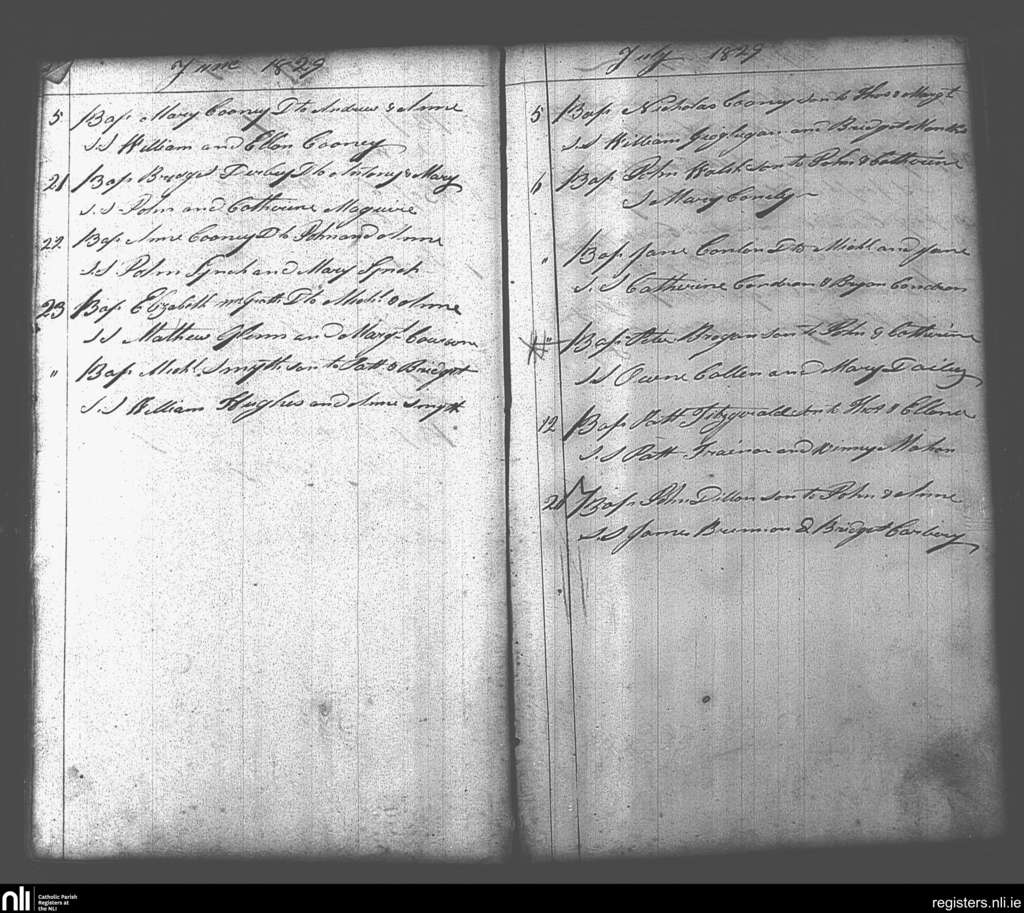 June 1829
5 Bap Mary Cooney D to Andrew & Anne
S.S William and Ellen Cooney
21 Bap Bridget Darby D to Antony & Mary
S.S John and Catherine Maguire
22 Bap Anne Cooney D to John and Anne
S.S John Lynch and Mary Lynch
23 Bap Elizabeth McGrath D to Michl & Anne
S.S Mathew Glenn and Margt
" Bap Michl. Smyth son to Patt & Bridget
S.S William Hughes and Anne Smyth
July 1829
5 Bap Nicholas Cooney son to Thos & Margt
S.S William Geoghegan and Bridget
6 Bap John Walsh son to John & Catherine
S Mary Conely
" Bap Jane Conlon D to Michl and Jane
S.S Catherine Condron & Bryan Condron
" Bap Peter Brogan son to John & Catherine
S.S Owene Callen and Mary Dailey
12 Bap Patt Fitzgerald son to Thos & Ellenor
S.S Patt Trainor and Winny Mahon
26 Bap John Dillon son to John & Anne
S.S James Brennon & Bridget Carbery
nli Catholic Parish
Registers at
the NLI
registers.nli.ie